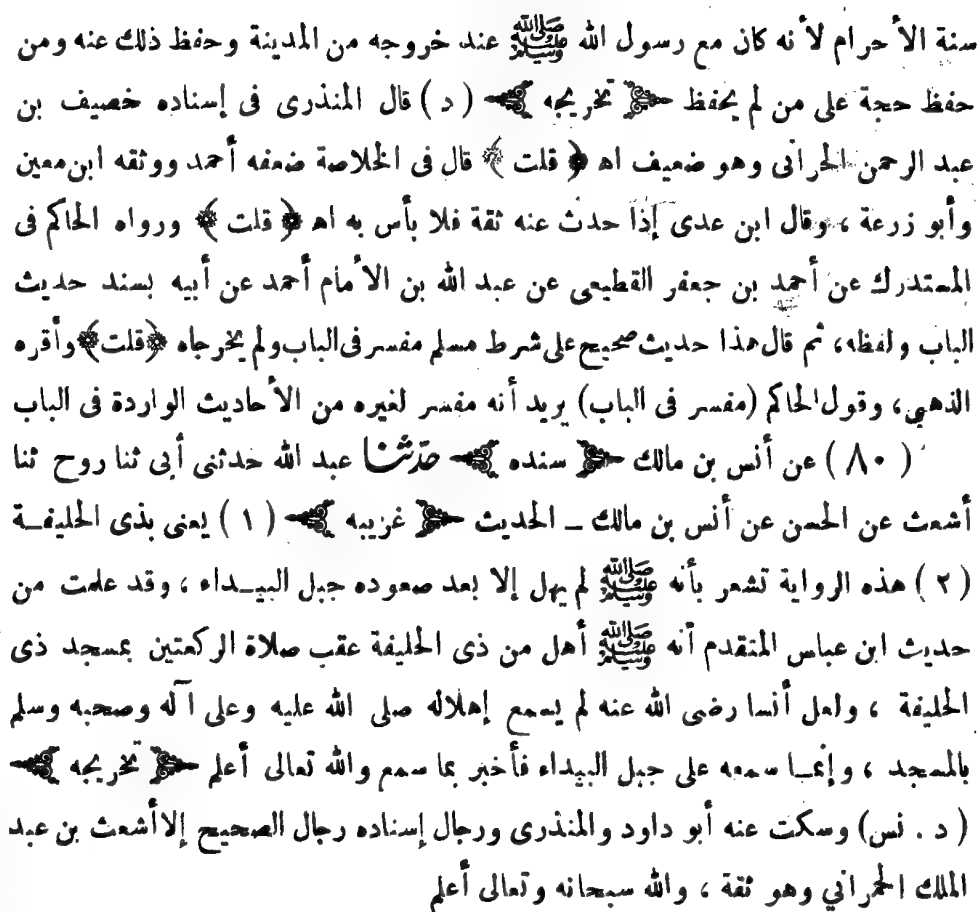 سنة الأحرام لأنه كان مع رسول الله ﷺ عند خروجه من المدينة وحفظ ذلك عنه ومن
حفظ حجة على من لم يحفظ ﴿ تخريجه ﴾ (د) قال المنذرى فى إسناده خصيف بن
عبد الرحمن الحرانى وهو ضعيف اه ﴿ قلت ﴾ قال فى الخلاصة ضعفه أحمد ووثقه ابن معين
وأبو زرعة ، وقال ابن عدى إذا حدث عنه ثقة فلا بأس به اه ﴿ قلت ﴾ ورواه الحاكم فى
المستدرك عن أحمد بن جعفر القطيعى عن عبد الله بن الأمام أحمد عن أبيه بسند حديث
الباب ولفظه، ثم قال هذا حديث صحيح على شرط مسلم مفسر فى الباب ولم يخرجاه ﴿قلت﴾ وأقره
الذهبى، وقول الحاكم (مفسر فى الباب) يريد أنه مفسر لغيره من الأحاديث الواردة فى الباب
(٨٠) عن أنس بن مالك ﴿ سنده ﴾ حدّثنا عبد الله حدثنى أبى ثنا روح ثنا
أشعث عن الحسن عن أنس بن مالك ــ الحديث ﴿ غريبه ﴾ (١) يعنى بذى الحليفــة
(٢) هذه الرواية تشعر بأنه ﷺ لم يهل إلا بعد صعوده جبل البيــداء ، وقد علمت من
حديث ابن عباس المتقدم أنه ﷺ أهل من ذى الحليفة عقب صلاة الركعتين بمسجد ذى
الحليفة ، ولعل أنسا رضى الله عنه لم يسمع إهلاله صلى الله عليه وعلى آله وصحبه وسلم
بالمسجد ، وإنمــا سمعه على جبل البيداء فأخبر بما سمع والله تعالى أعلم ﴿ تخريجه ﴾
(د . نس) وسكت عنه أبو داود والمنذرى ورجال إسناده رجال الصحيح إلا أشعث بن عبد
الملك الحمراني وهو ثقة ، والله سبحانه وتعالى أعلم